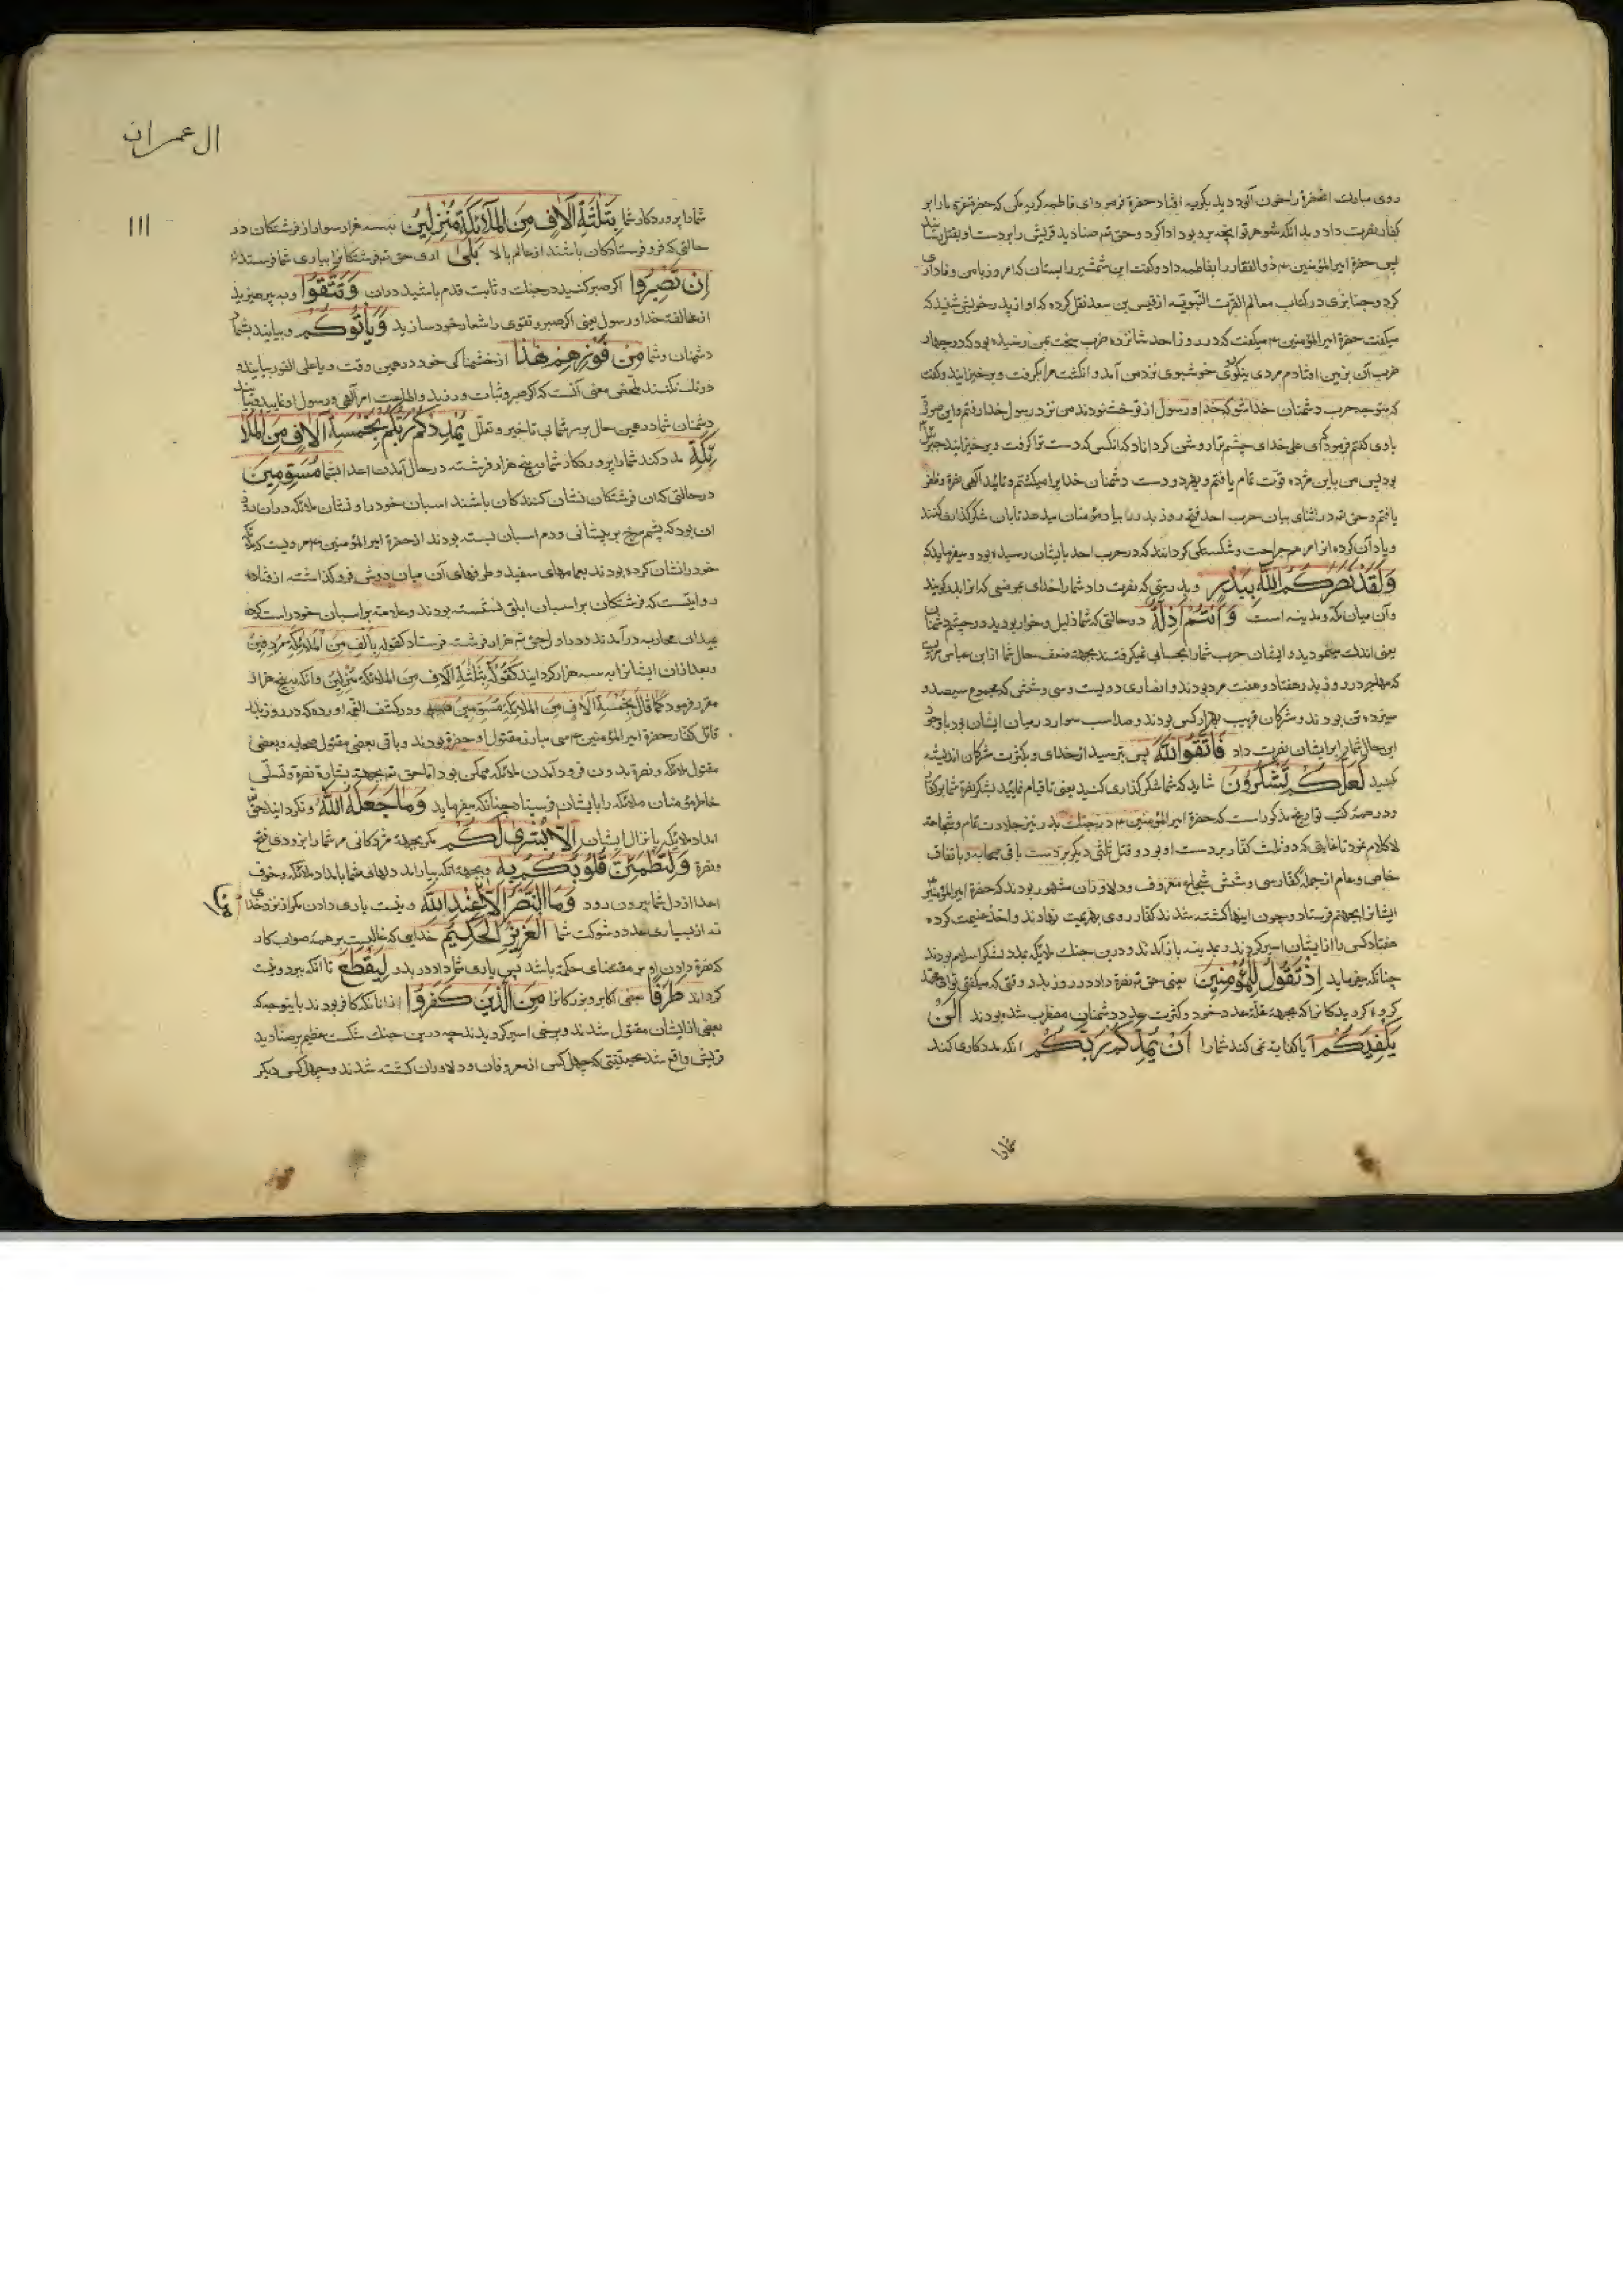 روی مبارک آنحضرة را خون آلود دید بگریه افتاد حضرة فرمود ای فاطمه گریه مکن که حضرة عزة مارا بر
کفار نصرت داد و بدانکه شوهر تو آنچه برو بود ادا کرد و حق تم صنادید قریش را بر دست او بقتل
پس حضرة امیرالمؤمنین ۴ ذو الفقار را بفاطمه داد و گفت این شمشیر را بستان که امروز با من وفاداری
کرد و جنابزی در کتاب معالم العترت النبویه از قیس بن سعد نقل کرده که او از پدر خویش شنید که
میگفت حضرة امیرالمؤمنین ۴ میگفت که در روز احد شانزده ضرب سخت بمن رسیده بود که در چهار
ضرب آن بزمین افتادم مردی نیکوی خوشبوی نزد من آمد و انگشت مرا بگرفت و برخیزانید و گفت
که متوجه حرب دشمنان خدا شو که خدا و رسول از تو خشنودند من نزد رسول خدا رفتم و این صورت
باوی گفتم فرمود ای علی خدای چشم ترا روشن کرداناد که آنکس که دست ترا گرفت و برخیزانید جبرئیل
بود پس من باین مژده قوت تمام یافتم و بهر دو دست دشمنان خدایرا میکشتم و تائید آلهی نصرة و ظفر
یافتم و حق تم در اثنای بیان حرب احد قصه روز بدر را بیاد مؤمنان میدهد تا بان شکرگذاری کنند
و یاد آن کرده انرا مرهم جراحت و شکستگی گردانند که در حرب احد بایشان رسیده بود و میفرماید که
وَلَقَدْ نَصَرَكُمُ اللّٰهُ بِبَدْرٍ و بدرستی که نصرت داد شما را خدای بموضعی که انرا بدر گویند
و آن میان مکه و مدینه است وَاَنْتُمْ اَذِلَّةٌ در حالتی که شما ذلیل و خوار بودید در چشم دشمنان
یعنی اندک مینمودید و ایشان حرب شما را بحسابی نمیگرفتند بجهة ضعف حال شما از ابن عباس مرویست
که مهاجر در روز بدر هفتاد و هفت مرد بودند و انصاری دویست و سی و شش که مجموع سیصد و
سیزده تن بودند و مشرکان قریب بهزار کس بودند و صد اسب سوار در میان ایشان بود با وجود
این حال شما را بر ایشان نصرت داد فَاتَّقُوا اللّٰهَ پس بترسید از خدای و بکثرت مشرکان اندیشه
مکنید لَعَلَّكُمْ تَشْكُرُونَ شاید که شما شکرگذاری کنید یعنی تا قیام نمایید بشکر نصرة شما بر کفار
و در همه کتب تواریخ مذکور است که حضرة امیرالمؤمنین ۴ در جنک بدر نیز جلادت تمام و شجاعة
لا کلام نمود تا غایتی که دو ثلث کفار بر دست او بود و قتل ثلثی دیگر بر دست باقی صحابه و باتفاق
خاص و عام از جمله کفار سی و شش شجاع معروف و دلاوران مشهور بودند که حضرة امیرالمؤمنین
ایشانرا بجهنم فرستاد و چون اینها کشته شدند کفار روی بهزیمت نهادند و اخذ غنیمت کرده
هفتاد کس را از ایشان اسیر کردند و بمدینه باز آمدند و درین جنک ملائکه بمدد لشکر اسلام بودند
چنانکه میفرماید اِذْ تَقُولُ لِلْمُؤْمِنِينَ یعنی حق تم نصرة داد در روز بدر وقتی که میگفتی تو ای محمد
گرویدگانرا که بجهة قلة عدد خود و کثرت عدد دشمنان مضطرب شده بودند اَلَنْ
يَكْفِيَكُمْ آیا کفایة نمی کند شما را اَنْ يُمِدَّكُمْ رَبُّكُمْ انکه مددکاری کند
شمارا
ال عمران
۱۱۱
شما را پروردکار شما بِثَلٰثَةِ اٰلَافٍ مِنَ الْمَلٰٓئِكَةِ مُنْزَلِينَ بسه هزار سوار از فرشتکان در
حالتی که فرو فرستادکان باشند از عالم بالا بَلٰى آری حق تم فرشتکانرا بیاری شما فرستد
اِنْ تَصْبِرُوا اکر صبر کنید در جنک و ثابت قدم باشید در ان وَتَتَّقُوا و بپرهیزید
از مخالفة خدا و رسول یعنی اکر صبر و تقوی را شعار خود سازید وَيَأْتُوكُمْ و بیایند بشما
دشمنان و شما مِنْ فَوْرِهِمْ هٰذَا از خشمناکی خود در همین وقت و یا علی الفور بیایند و
درنک نکنند ملخص معنی آنست که اکر صبر و ثبات ورزید و اطاعت امر آلهی و رسول او نمایید و بیایند
دشمنان شما در همین حال بر سر شما بی تاخیر و تعلل يُمْدِدْكُمْ رَبُّكُمْ بِخَمْسَةِ اٰلَافٍ مِنَ الْمَلٰٓ
ئِكَةِ مدد کند شما را پروردکار شما به پنج هزار فرشته در حال آمدن اعدا بشما مُسَوِّمِينَ
در حالتی که ان فرشتکان نشان کنندکان باشند اسبان خود را و نشان ملائکه در ان روز
ان بود که پشم سرخ بر پیشانی و دم اسبان بسته بودند از حضرة امیرالمؤمنین ۴ مرویست که ملائکه
خود را نشان کرده بودند بعمامهای سفید و طرفهای آن میان دوش فرو کذاشته از قتاده
روایتست که فرشتکان بر اسبان ابلق نشسته بودند و علامة بر اسبان خود راست کرده
بمیدان محاربه درآمدند و در اول حق تم هزار فرشته فرستاد کقوله بِاَلْفٍ مِنَ الْمَلٰٓئِكَةِ مُرْدِفِينَ
و بعد از ان ایشانرا به سه هزار کردانید کقوله بِثَلٰثَةِ اٰلَافٍ مِنَ الْمَلٰٓئِكَةِ مُنْزَلِينَ و انکه به پنج هزار
مقرر فرمود کما قال بِخَمْسَةِ اٰلَافٍ مِنَ الْمَلٰٓئِكَةِ مُسَوِّمِينَ و در کشف الغمه آورده که در روز بدر
قاتل کفار حضرة امیرالمؤمنین ۴ سی مبارز مقتول او حضرة بودند و باقی بعضی مقتول صحابه و بعضی
مقتول ملائکه و نصرة بدون فرود آمدن ملائکه ممکن بود اما حق تم بجهة بشارة نصرة و تسلی
خاطر مؤمنان ملائکه را بایشان فرستاد چنانکه میفرماید وَمَا جَعَلَهُ اللّٰهُ و نکردانید حق
امداد ملائکه یا انزال ایشان اِلَّا بُشْرٰى لَكُمْ مکر بجهة مژدکانی مر شما را بزودی فتح
و نصرة وَلِتَطْمَئِنَّ قُلُوبُكُمْ بِهِ و بجهة انکه بیارامد دلهای شما بامداد ملائکه و خوف
اعدا از دل شما بیرون رود وَمَا النَّصْرُ اِلَّا مِنْ عِنْدِ اللّٰهِ و نیست یاری دادن مکر از نزد خدای
نه از بسیاری عدد و شوکت شما الْعَزِيزِ الْحَكِيمِ خدایی که غالبست بر همه صواب کار
که نصرة دادن او بر مقتضای حکمة باشد پس یاری شما داد در بدر لِيَقْطَعَ تا انکه ببرد و نیست
کرداند طَرَفًا جمعی اکابر و بزرکانرا مِنَ الَّذِينَ كَفَرُوا از انانکه کافر بودند باینوجه که
بعضی از ایشان مقتول شدند و برخی اسیر کردیدند چه در این جنک شکست عظیم بر صنادید
قریش واقع شد بحیثیتی که چهل کس از معروفان و دلاوران کشته شدند و چهل کس دیکر